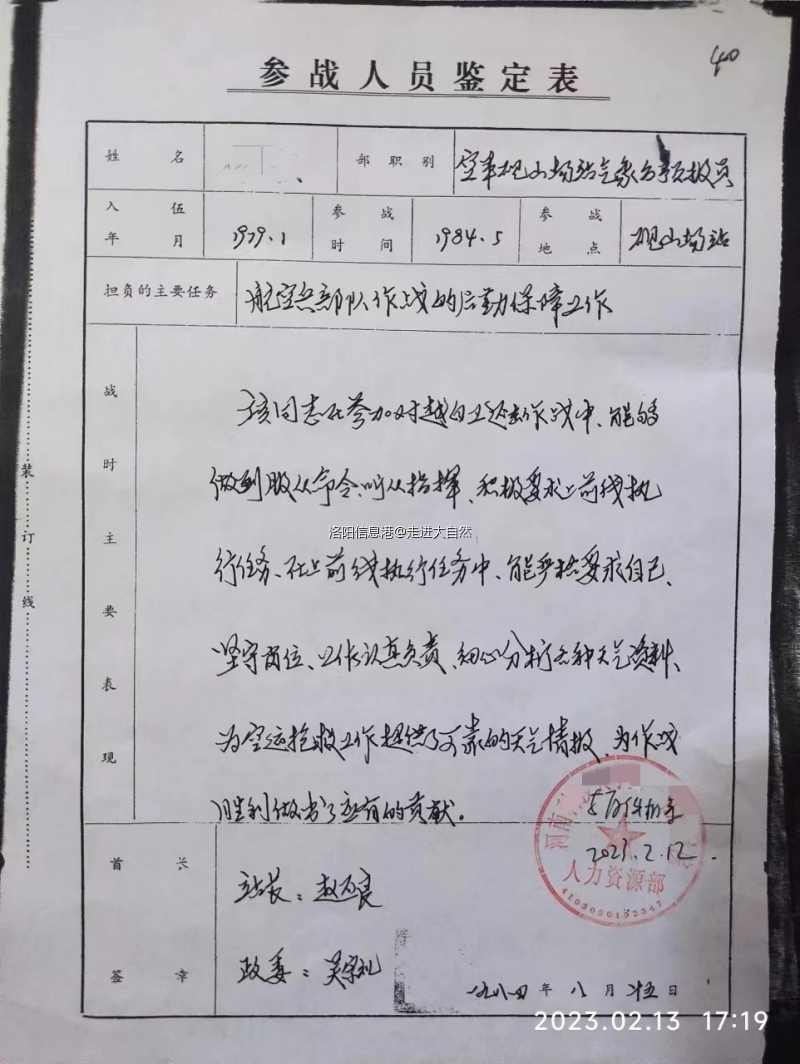 40
参战人员鉴定表
姓名
部职别 空军砚山场站气象台预报员
入伍年月 1979.1 参战时间 1984.5 参战地点 砚山场站
担负的主要任务 航空兵部队作战的后勤保障工作
战时主要表现
该同志在参加对越自卫还击作战中、能够
做到服从命令、听从指挥、积极要求上前线执
行任务、在上前线执行任务中、能严格要求自己、
坚守岗位、工作认真负责、细心分析各种天气资料、
为空运抢救工作提供了可靠的天气情报、为作战
胜利做出了应有的贡献。
装订线
洛阳信息港@走进大自然
与原件相符
2023.2.12.
河南
人力资源部
4103050192347
首长签章
站长：赵万良
政委：吴宗礼
一九八四年八月廿五日
2023.02.13 17:19